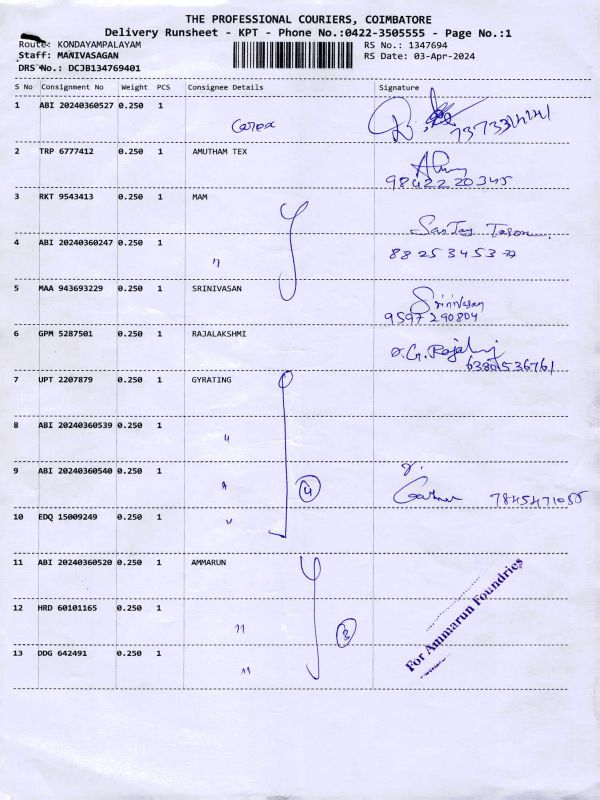 THE PROFESSIONAL COURIERS, COIMBATORE
Delivery Runsheet - KPT - Phone No.:0422-3505555 - Page No.:1
Route: KONDAYAMPALAYAM
RS No.: 1347694
Staff: MANIVASAGAN
RS Date: 03-Apr-2024
DRS No.: DCJB134769401
S No Consignment No Weight PCS Consignee Details Signature
1 ABI 20240360527 0.250 1
2 TRP 6777412 0.250 1 AMUTHAM TEX
98422 20345
3 RKT 9543413 0.250 1 MAM
4 ABI 20240360247 0.250 1 "
88253453
5 MAA 943693229 0.250 1 SRINIVASAN Srinivasan
9597290804
6 GPM 5287501 0.250 1 RAJALAKSHMI
6380536761
7 UPT 2207879 0.250 1 GYRATING
8 ABI 20240360539 0.250 1 "
9 ABI 20240360540 0.250 1 " 4 7845471055
10 EDQ 15009249 0.250 1 "
11 ABI 20240360520 0.250 1 AMMARUN
For Ammarun Foundries
12 HRD 60101165 0.250 1 " 3
13 DDG 642491 0.250 1 "